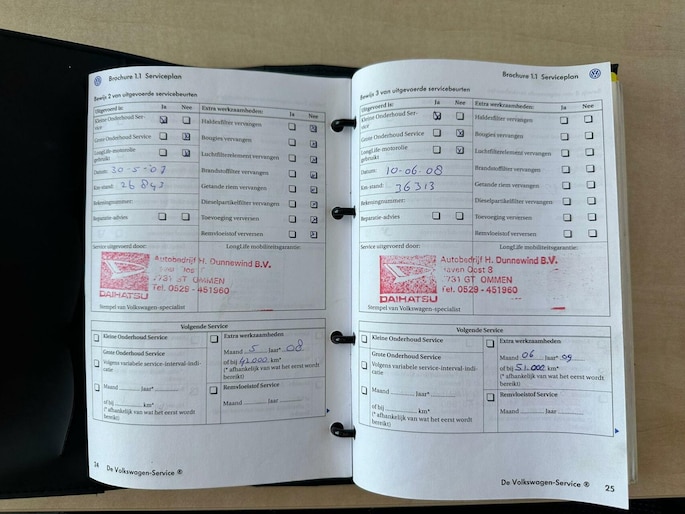 Brochure 1.1 Serviceplan
Bewijs 2 van uitgevoerde servicebeurten
Uitgevoerd is: Ja Nee Extra werkzaamheden: Ja Nee
Kleine Onderhoud Ser-
vice
Haldexfilter vervangen
Grote Onderhoud Service
Bougies vervangen
LongLife-motorolie
gebruikt
Luchtfilterelement vervangen
Datum: 30-5-07
Brandstoffilter vervangen
Km-stand: 26843
Getande riem vervangen
Rekeningnummer:
Dieselpartikelfilter vervangen
Reparatie-advies
Toevoeging verversen
Remvloeistof verversen
Service uitgevoerd door: LongLife mobiliteitsgarantie:
Autobedrijf H. Dunnewind B.V.
7731 GT OMMEN
Tel. 0529 - 451960
DAIHATSU
Stempel van Volkswagen-specialist
Volgende Service
Kleine Onderhoud Service
Extra werkzaamheden
Grote Onderhoud Service
Maand 5 Jaar* 08
Volgens variabele service-interval-indi-
catie
of bij 42.000 km*
(* afhankelijk van wat het eerst wordt
bereikt)
Maand Jaar*
Remvloeistof Service
of bij km*
Maand Jaar
(* afhankelijk van wat het eerst wordt
bereikt)
24 De Volkswagen-Service ®
Brochure 1.1 Serviceplan
Bewijs 3 van uitgevoerde servicebeurten
Uitgevoerd is: Ja Nee Extra werkzaamheden: Ja Nee
Kleine Onderhoud Ser-
vice
Haldexfilter vervangen
Grote Onderhoud Service
Bougies vervangen
LongLife-motorolie
gebruikt
Luchtfilterelement vervangen
Datum: 10-06-08
Brandstoffilter vervangen
Km-stand: 36313
Getande riem vervangen
Rekeningnummer:
Dieselpartikelfilter vervangen
Reparatie-advies
Toevoeging verversen
Remvloeistof verversen
Service uitgevoerd door: LongLife mobiliteitsgarantie:
Autobedrijf H. Dunnewind B.V.
Haven Oost 3
7731 GT OMMEN
Tel. 0529 - 451960
DAIHATSU
Stempel van Volkswagen-specialist
Volgende Service
Kleine Onderhoud Service
Extra werkzaamheden
Grote Onderhoud Service
Maand 06 Jaar* 09
Volgens variabele service-interval-indi-
catie
of bij 51.000 km*
(* afhankelijk van wat het eerst wordt
bereikt)
Maand Jaar*
Remvloeistof Service
of bij km*
Maand Jaar
(* afhankelijk van wat het eerst wordt
bereikt)
De Volkswagen-Service ® 25